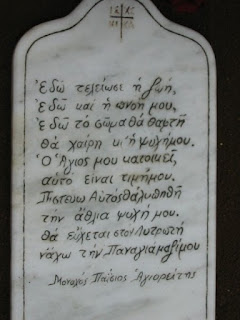 ΙΣ ΧΣ
ΝΙ ΚΑ
Ἐδῶ τελείωσε ἡ ζωή,
ἐδῶ καὶ ἡ πνοή μου.
ἐδῶ τὸ σῶμα θὰ θαφτῆ
θὰ χαίρη κι' ἡ ψυχή μου.
Ὁ Ἅγιος μου κατοικεῖ,
αὐτὸ εἶναι τιμή μου.
Πιστεύω Αὐτὸς θὰ λυπηθῆ
τὴν ἄθλια ψυχή μου.
θὰ εὔχεται στὸν Λυτρωτὴ
νἄχω τὴν Παναγιὰ μαζί μου
Μοναχὸς Παΐσιος Ἁγιορείτης